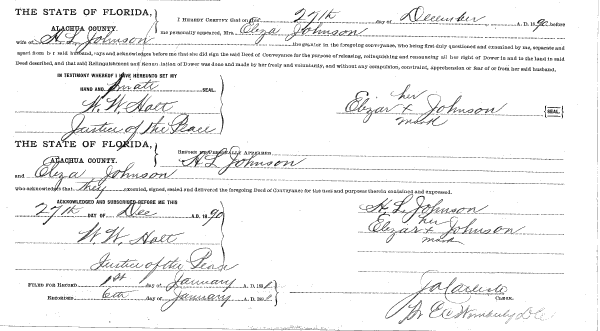 THE STATE OF FLORIDA,
ALACHUA COUNTY.
I HEREBY CERTIFY that on the 27th day of December A. D. 1890 before
me personally appeared, Mrs. Eliza Johnson
wife of H. L. Johnson the grantor in the foregoing conveyance, who being first duly questioned and examined by me, separate and
apart from her said husband, says and acknowledges before me that she did sign the said Deed of Conveyance for the purpose of releasing, relinquishing and renouncing all her right of Dower in and to the land in said
Deed described, and that said Relinquishment and Renunciation of Dower was done and made by her freely and voluntarily, and without any compulsion, constraint, apprehension or fear of or from her said husband.
IN TESTIMONY WHEREOF I HAVE HEREUNTO SET MY
HAND AND Private SEAL.
W. W. Holt
Justice of the Peace
her
Elizar x Johnson SEAL
mark
THE STATE OF FLORIDA,
ALACHUA COUNTY.
BEFORE ME PERSONALLY APPEARED
H L Johnson
and Eliza Johnson
who acknowledged that they executed, signed, sealed and delivered the foregoing Deed of Conveyance for the uses and purposes therein contained and expressed.
ACKNOWLEDGED AND SUBSCRIBED BEFORE ME THIS
27th DAY OF Dec A.D. 1890
W. W. Holt
Justice of the Peace
H. L. Johnson
her
Elizar x Johnson
mark
FILED FOR RECORD 1st day of January A.D. 189
RECORDED 6th day of January A.D. 189
CLERK.
Pr E C Wimberly D C